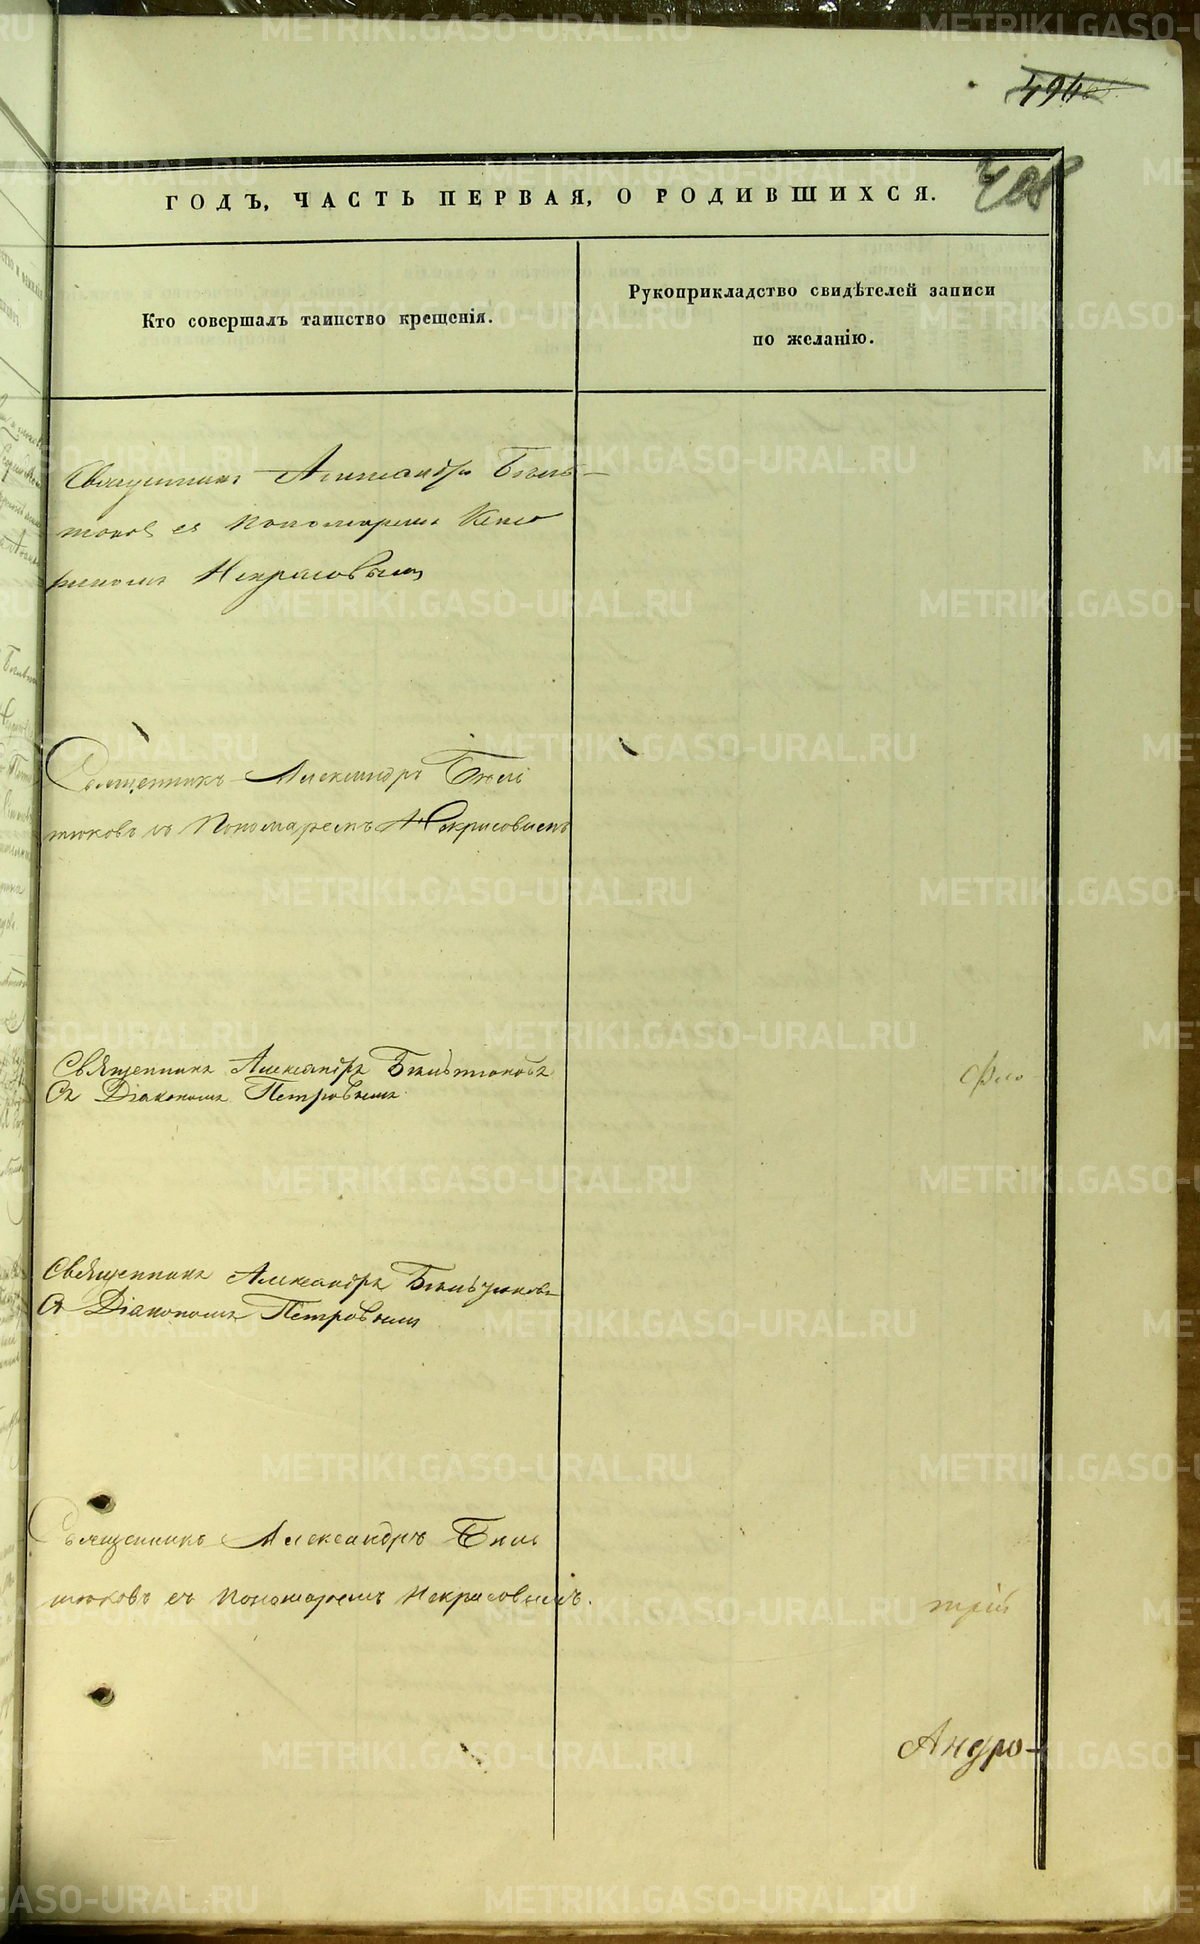 ГОДЪ, ЧАСТЬ ПЕРВАЯ, О РОДИВШИХСЯ.
Кто совершалъ таинство крещенія.
Рукоприкладство свидѣтелей записи
по желанію.
Священникъ Александръ Бѣль-
тюковъ съ Пономаремъ
Некрасовымъ
Священникъ Александръ Бѣль
тюковъ съ Пономаремъ Некрасовымъ
Священникъ Александръ Бѣльтюковъ
Съ Діакономъ Петровымъ
Священникъ Александръ Бѣльтюковъ
Съ Діакономъ Петровымъ
Священникъ Александръ Бѣль
тюковъ съ Пономаремъ Некрасовымъ.
трій
Андро-
METRIKI.GASO-URAL.RU